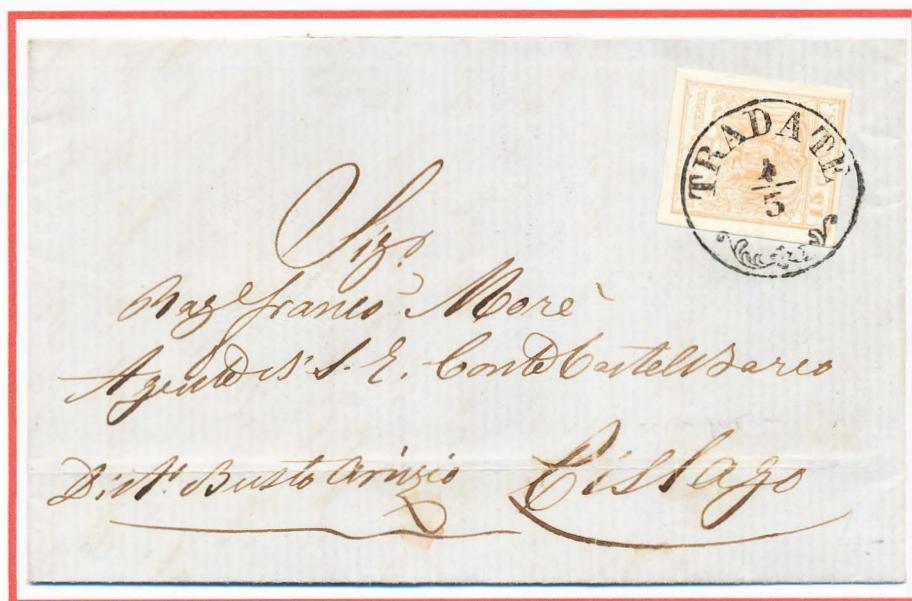 TRADATE
1/3
15
Sigr
Rage franco Morè
Agente di S. E. Conte Castelbarco
Distto Busto Arsizio Cislago